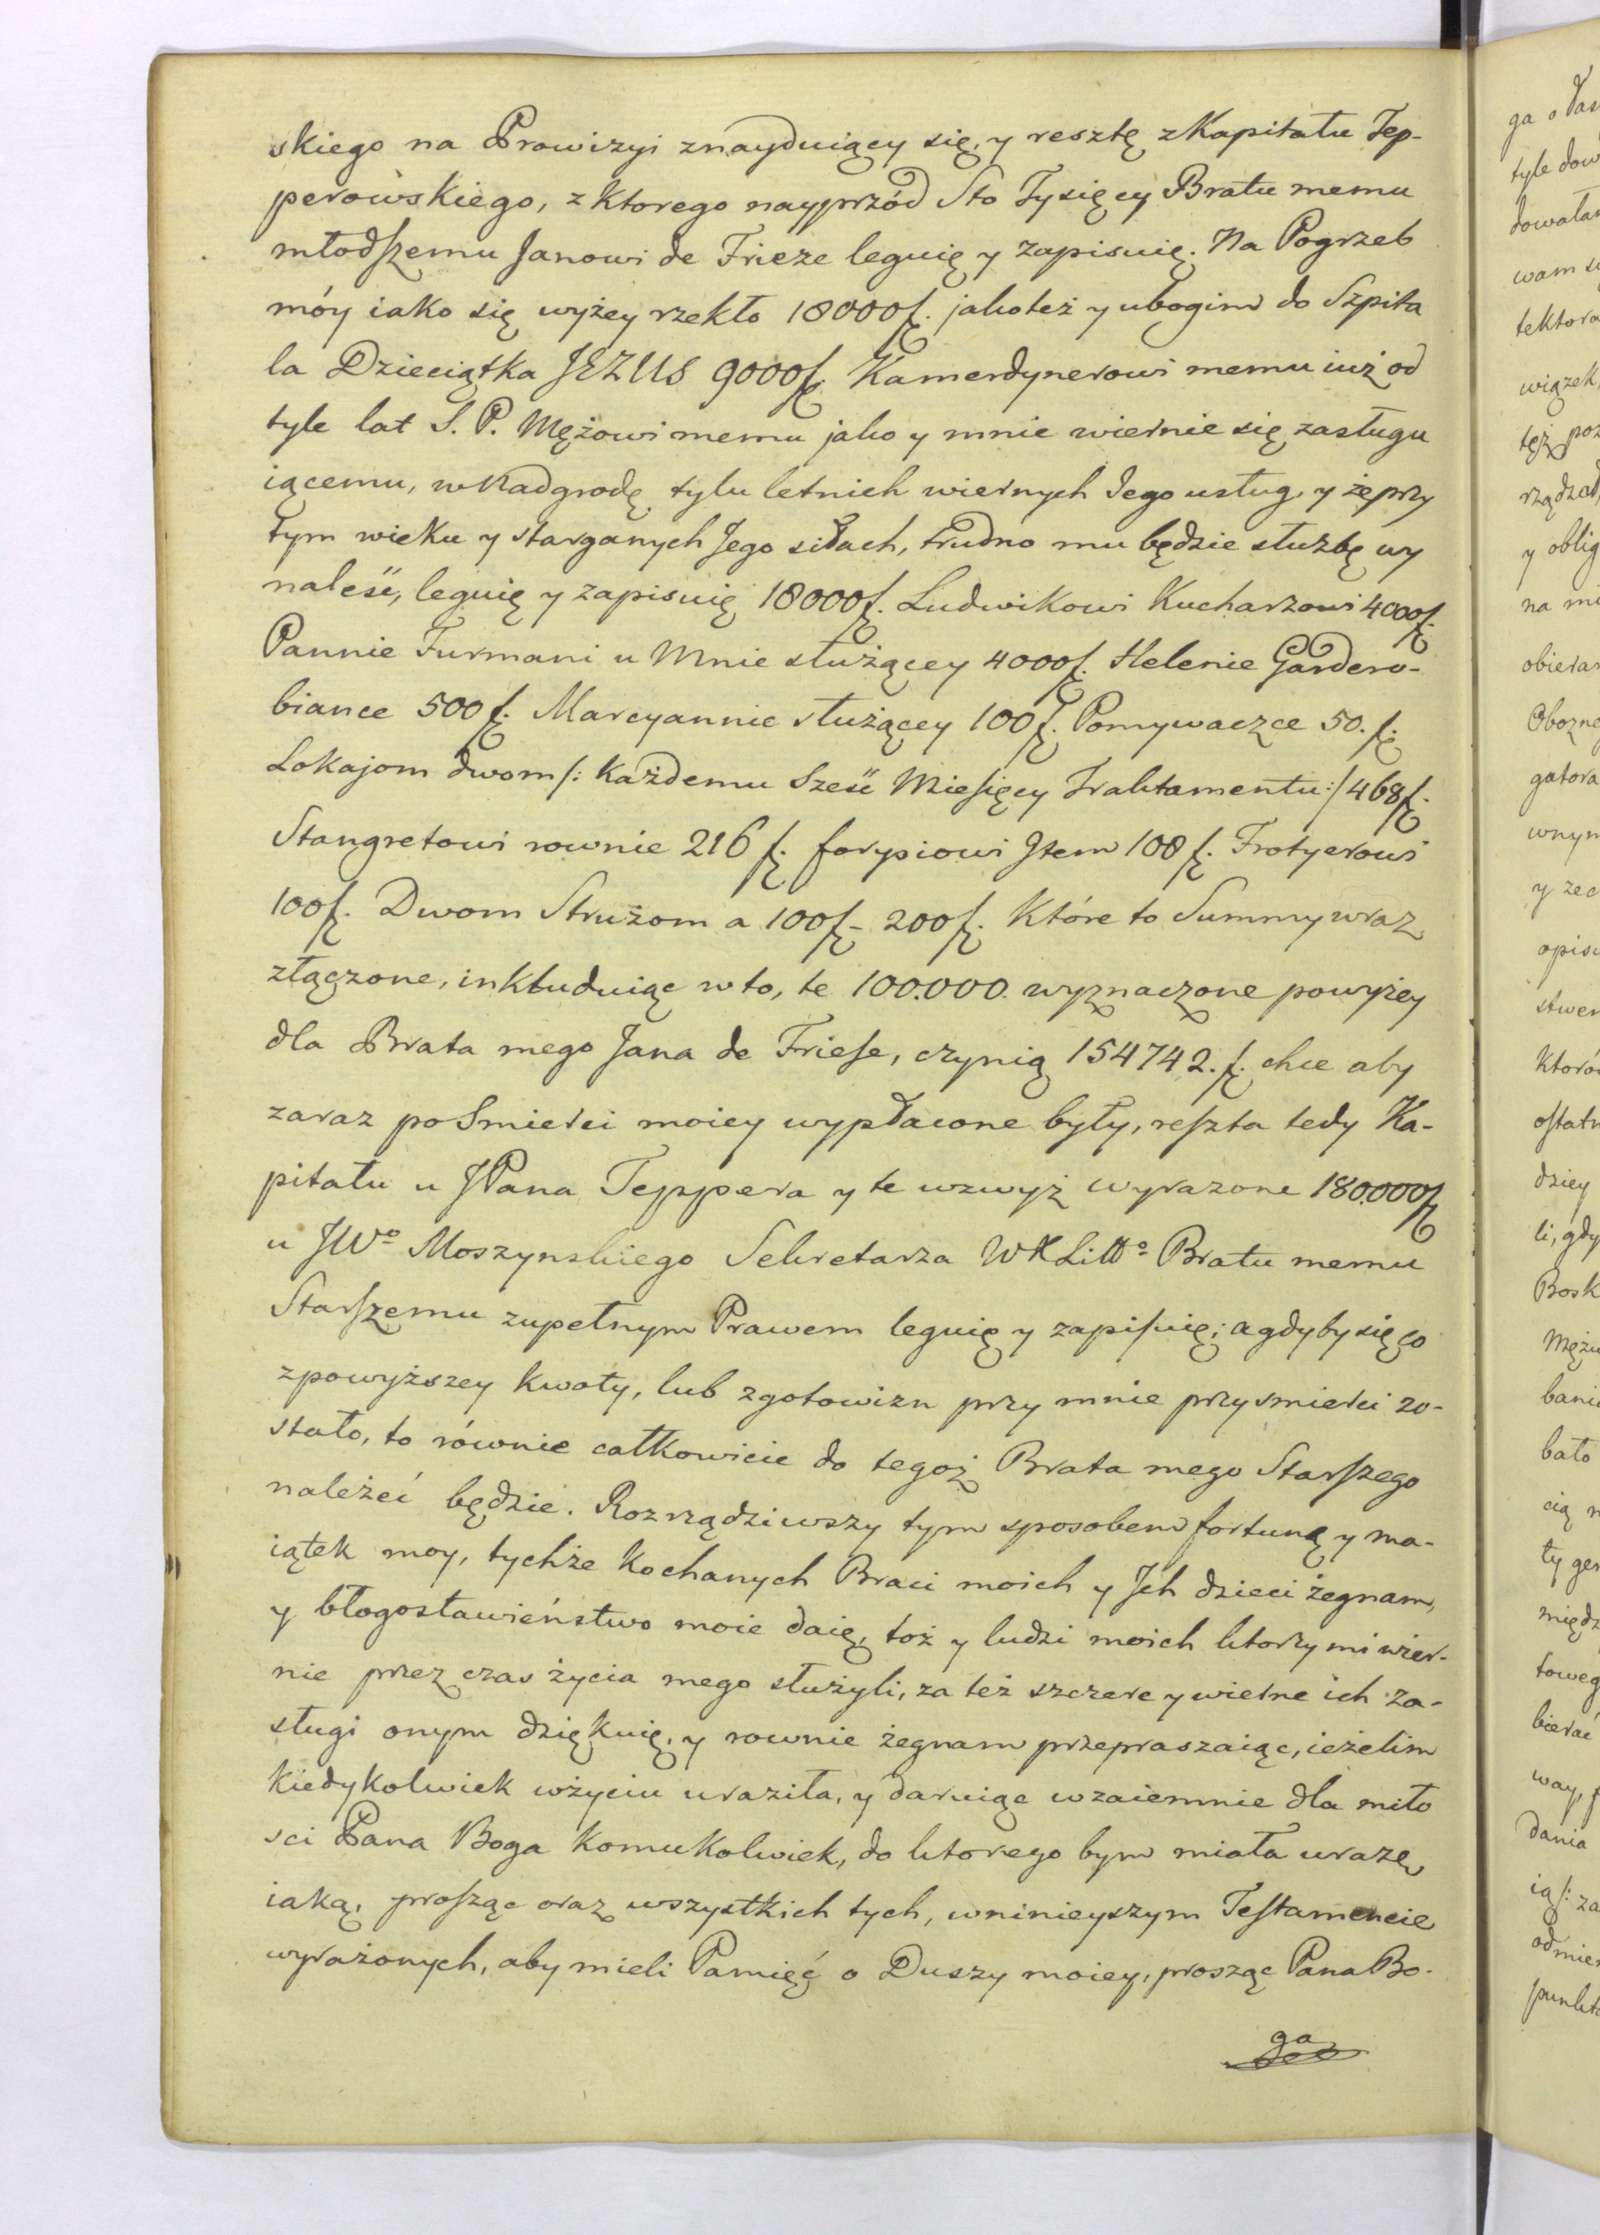 skiego na Prowizyi znayduiący się, y resztę z Kapitału Tep-
perowskiego, z ktorego nayprzód Sto Tysięcy Bratu memu
młodszemu Janowi de Frieze leguię y zapisuię. Na Pogrzeb
móy iako się wyżey rzekło 18000f. jakoteż y ubogim do Szpita
la Dzieciątka JEZUS 9000f. Kamerdynerowi memu iuż od
tyle lat S. P. Mężowi memu jako y mnie wiernie się zasługu
iącemu, w Nadgrodę tylu letnich wiernych Jego usług, y że przy
tym wieku y starganych Jego siłach, trudno mu będzie służbę wy
naleść, leguię y zapisuię 18000f. Ludwikowi Kucharzowi 4000f.
Pannie Furmani u Mnie służącey 4000f. Helenie Gardero-
biance 500f. Marcyannie służącey 100f. Pomywaczce 50.f.
Lokajom dwom /: każdemu Sześć Miesięcy Traktamentu :/ 468f.
Stangretowi rownie 216f. forysiowi Jtem 108f. Frotyerowi
100f. Dwom Stružom a 100f - 200f. Które to Summy wraz
złączone, inkluduiąc w to, te 100.000. wyznaczone powyżey
dla Brata mego Jana de Friese, czynią 154742.f. chce aby
zaraz po Smierci moiey wypłacone były, reszta tedy Ka-
pitału u JPana Teppera y te wzwyż wyrazone 180.000f
u JWo Moszynskiego Sekretarza WXLitto Bratu memu
Starszemu zupełnym Prawem leguię y zapisuię; a gdyby się co
z powyższey kwoty, lub z gotowizn przy mnie przy smierci zo-
stało, to równie całkowicie do tegoż Brata mego Starszego
należeć będzie. Rozrządziwszy tym sposobem fortuną y ma-
iątek moy, tychże kochanych Braci moich y Jch dzieci żegnam,
y błogosławieństwo moie daię, toż y ludzi moich ktorzy mi wier-
nie przez czas życia mego służyli, za też szczere y wierne ich za-
sługi onym dziękuię, y rownie żegnam przepraszaiąc, ieżelim
kiedykolwiek w życiu uraziła, y daruiąc wzaiemnie dla miło
sci Pana Boga komukolwiek, do ktorego bym miała urazę
iaką, prosząc oraz wszystkich tych, w ninieyszym Testamencie
wyrażonych, aby mieli Pamięć o Duszy moiey, prosząc Pana Bo-
ga